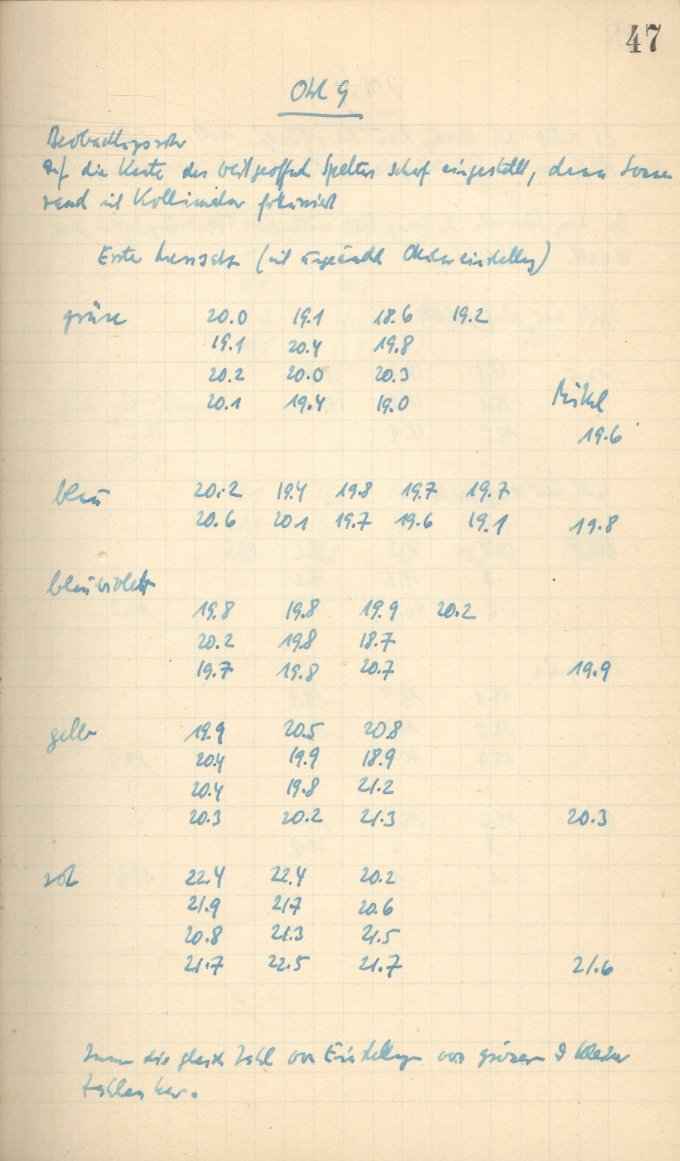 47
Okl G
Beobachtungsrohr
auf die Kante des weitgeoffneten Spaltes scharf eingestellt, dann
mit Kollimator fokussiert
Erster Messsatz (mit ungeänderter Okulareinstellung)
grün 20.0 19.1 18.6 19.2
19.1 20.4 19.8
20.2 20.0 20.3
20.1 19.4 19.0 Mittel
19.6
blau 20.2 19.4 19.8 19.7 19.7
20.6 20.1 19.7 19.6 19.1 19.8
blauviolett
19.8 19.8 19.9 20.2
20.2 19.8 18.7
19.7 19.8 20.7 19.9
gelb 19.9 20.5 20.8
20.4 19.9 18.9
20.4 19.8 21.2
20.3 20.2 21.3 20.3
rot 22.4 22.4 20.2
21.9 21.7 20.6
20.8 21.3 21.5
21.7 22.5 21.7 21.6
Immer die gleiche Zahl von Einstellungen von grösseren & kleinen
Zahlen her.